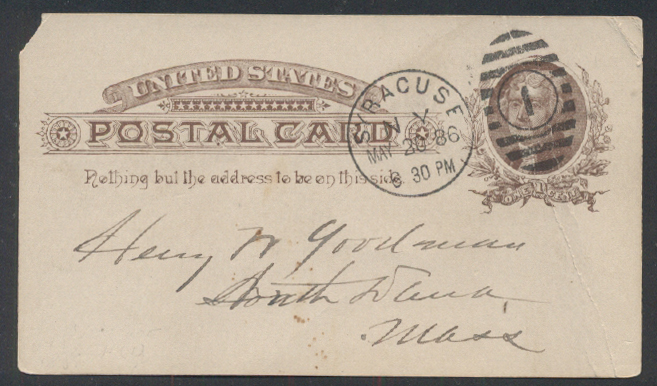 UNITED STATES
POSTAL CARD
Nothing but the address to be on this side.
SYRACUSE
N Y
MAY 20 86
8 30 PM
1
ONE CENT
Henry W Goodman
South Dana
Mass